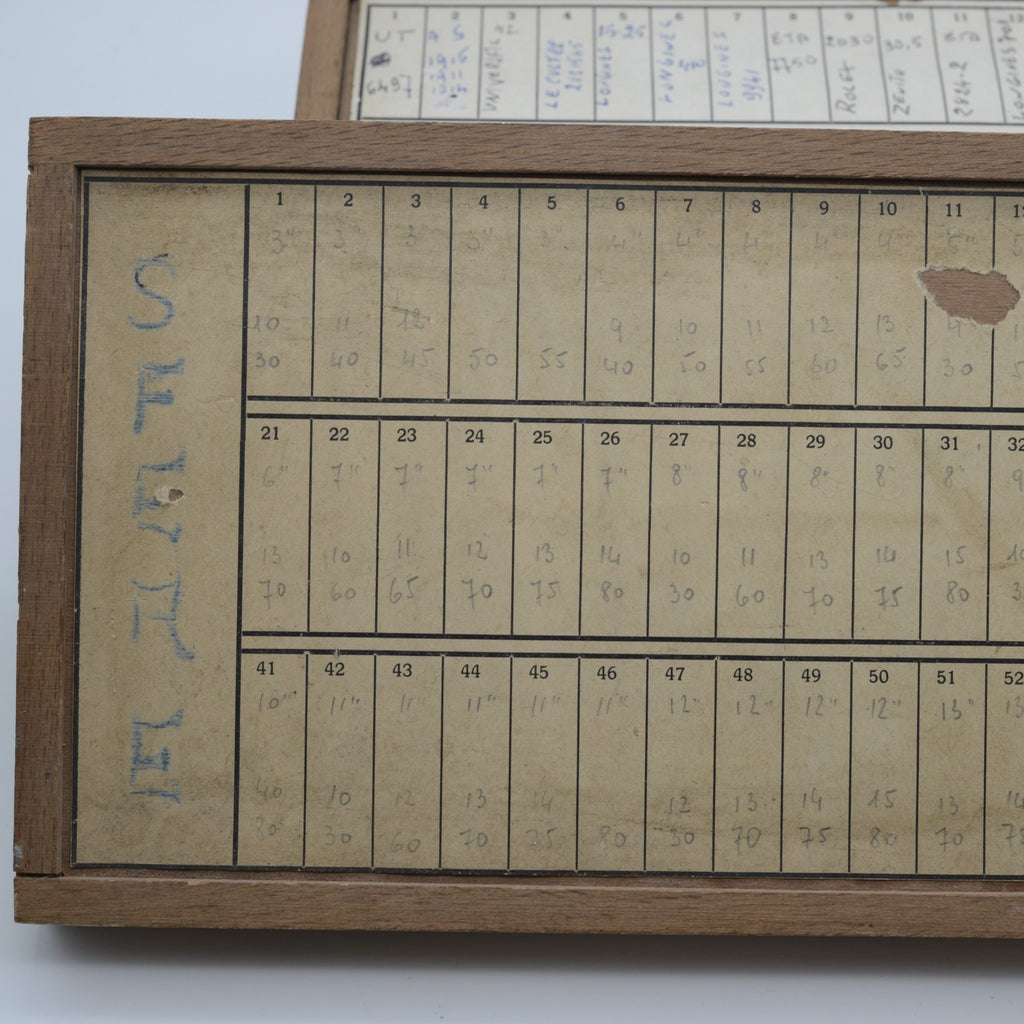 1 2 3 4 5 6 7 8 9 10 11
UNIVERSAL
LE COULTRE
LONGINES
LONGINES
LONGINES 9941
ETA 7750
2030 ROLEX
30,5 ZENITH
ETA 2824-2
1 2 3 4 5 6 7 8 9 10 11
3" 3" 3" 3" 3" 4" 4" 4" 4" 4"
10 11 12 9 10 11 12 13 9
30 40 45 50 55 40 50 55 60 65 30
21 22 23 24 25 26 27 28 29 30 31 32
6" 7" 7" 7" 7" 7" 8" 8" 8" 8" 8" 9
13 10 11 12 13 14 10 11 13 14 15
70 60 65 70 75 80 30 60 70 75 80
41 42 43 44 45 46 47 48 49 50 51 52
10" 11" 11" 11" 11" 11" 12" 12" 12" 12" 13" 13
40 10 12 13 14 12 13 14 15 13 14
80 30 60 70 75 80 50 70 75 80 70 75